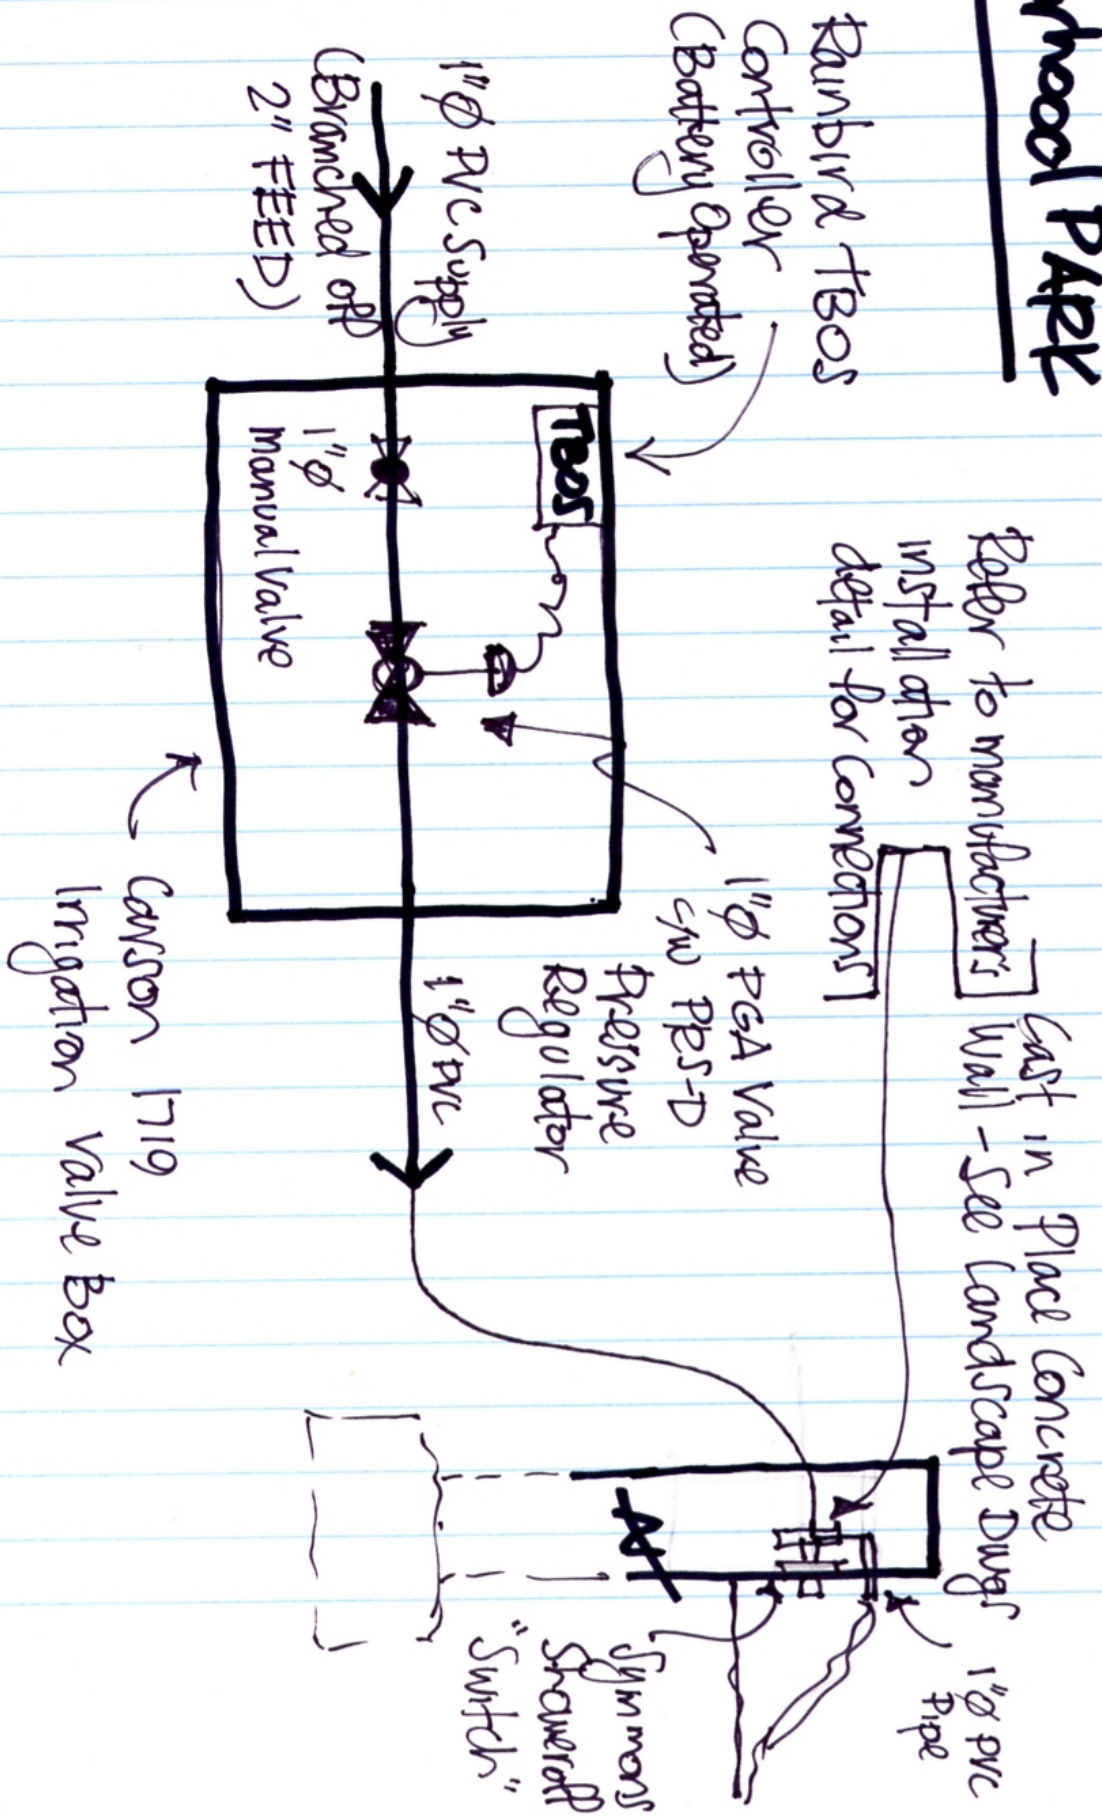 rhood PARK
Rainbird TBOS
Controller
(Battery Operated)
1"Ø PVC Supply
(Branched off
2" FEED)
TBOS
1"Ø
manual valve
Refer to manufacturers
installation
detail for connections
1"Ø PGA Valve
c/w PRS-D
Pressure
Regulator
1"Ø PVC
Carson 1719
Irrigation Valve Box
Cast in Place Concrete
Wall - See Landscape Dwgs
1"Ø PVC
Pipe
Symmons
Showeroff
"Switch"